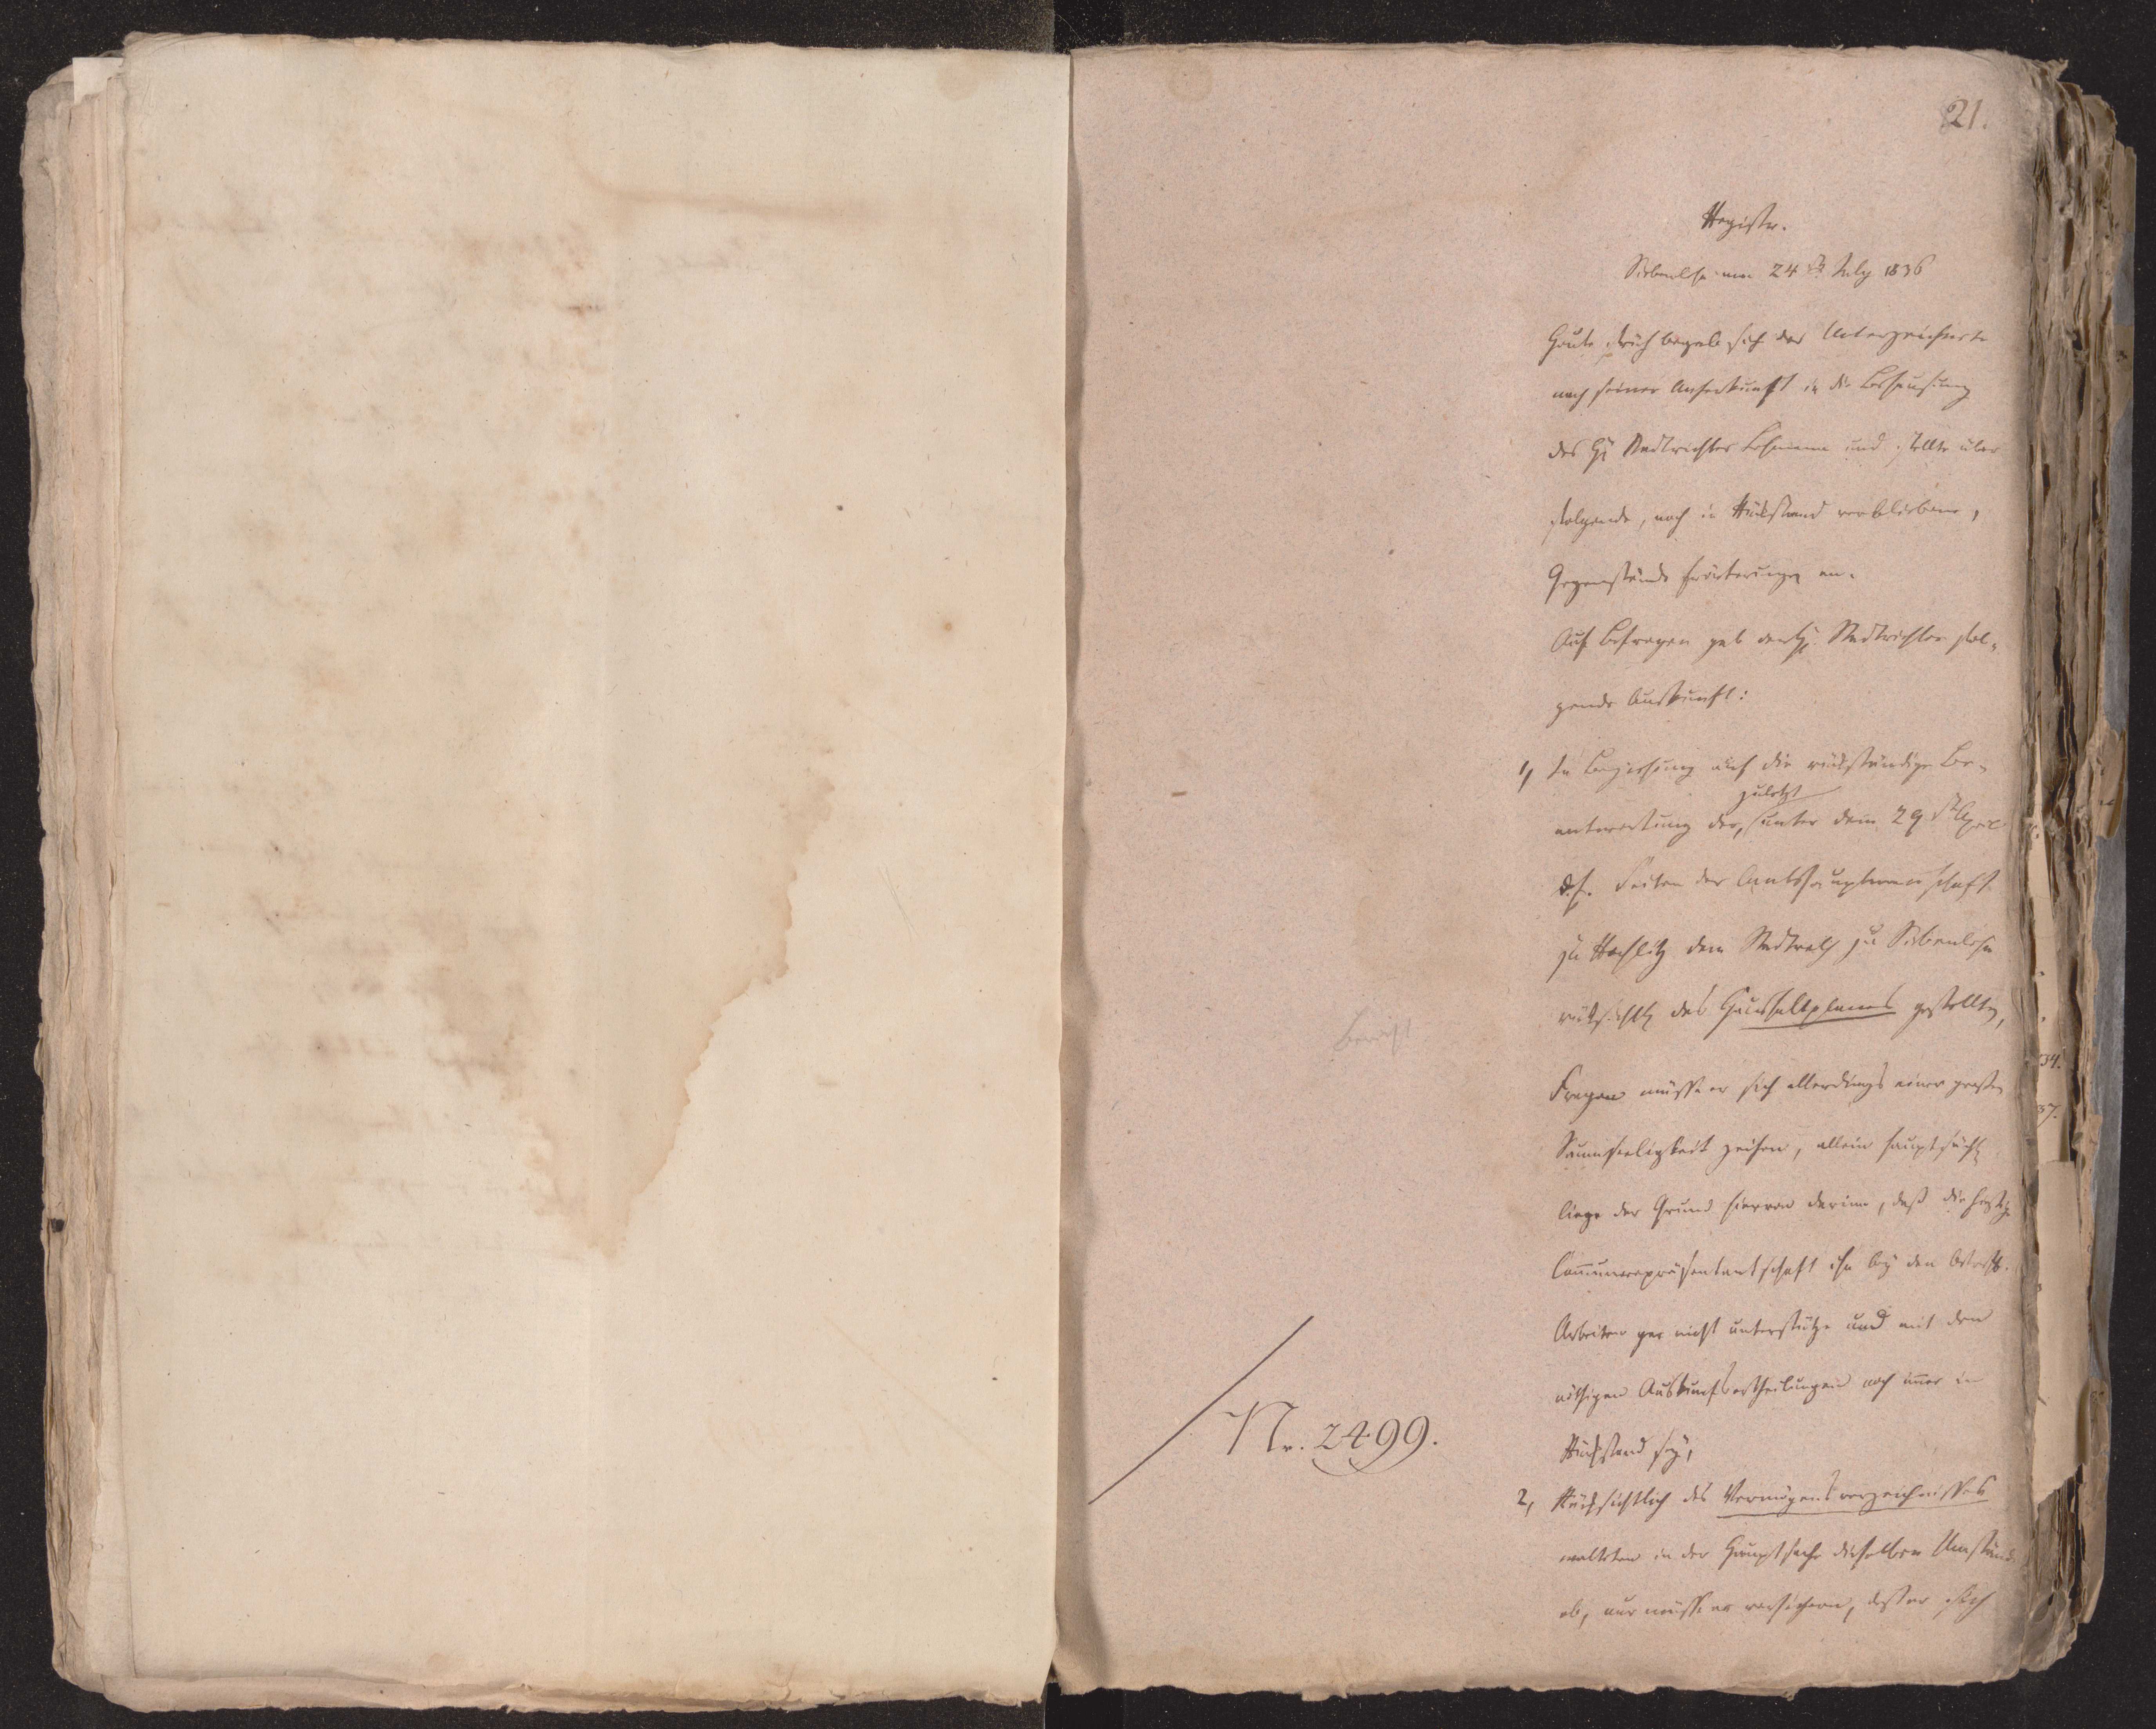 21.
Registr.
Siebenlehn am 24 July 1836
Heute früh begab sich der Unterzeichnete
nach seiner Anherkunft in die Behausung
des H. Stadtrichter Lehmann und stellte über
folgende, noch in Rückstand verbliebene,
Gegenstände Erörterungen an.
Auf Befragen gab der H. Stadtrichter fol-
gende Auskunft:
1, In Beziehung auf die rückständige Be-
zuletzt
antwortung der, unter dem 29 April
d. J. Seiten der Amtshauptmannschaft
zu Rochlitz dem Stadtrath zu Siebenlehn
rücksichtl. des Haushaltplanes gestellten,
Fragen müsse er sich allerdings einer großen
Saumseeligkeit zeihen, allein hauptsächl.
liege der Grund hiervon darinn, daß die
Communrepräsentantschaft ihn bey den
Arbeiten gar nicht unterstütze und mit den
nöthigen Auskunftsertheilungen noch immer in
Rückstand sey,
Bericht
Nr. 2499.
2, Rücksichtlich des Vermögensverzeichnisses
walteten in der Hauptsache dieselben Umstände
ob, nur müsse er versichern, daß er sich